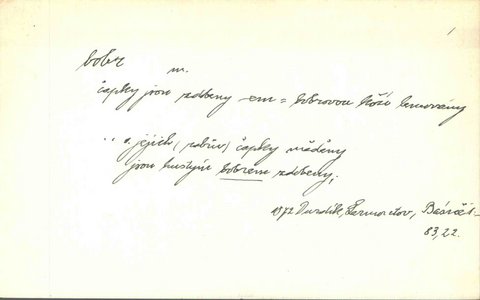 bobr
m.
čapky jsou zdobeny -em = bobrovou koží lemovány
.. a jejich (rabův) čapky měděny
jsou hustým bobrem zdobeny;
1872 Durdík, Lermontov,
83, 22.